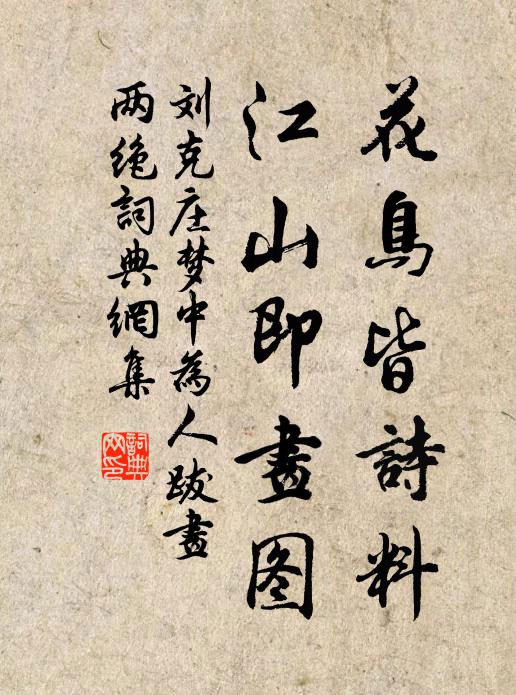 花鳥皆詩料
江山即畫图
刘克庄梦中為人跋畫
两绝詞典網集
詞典網印